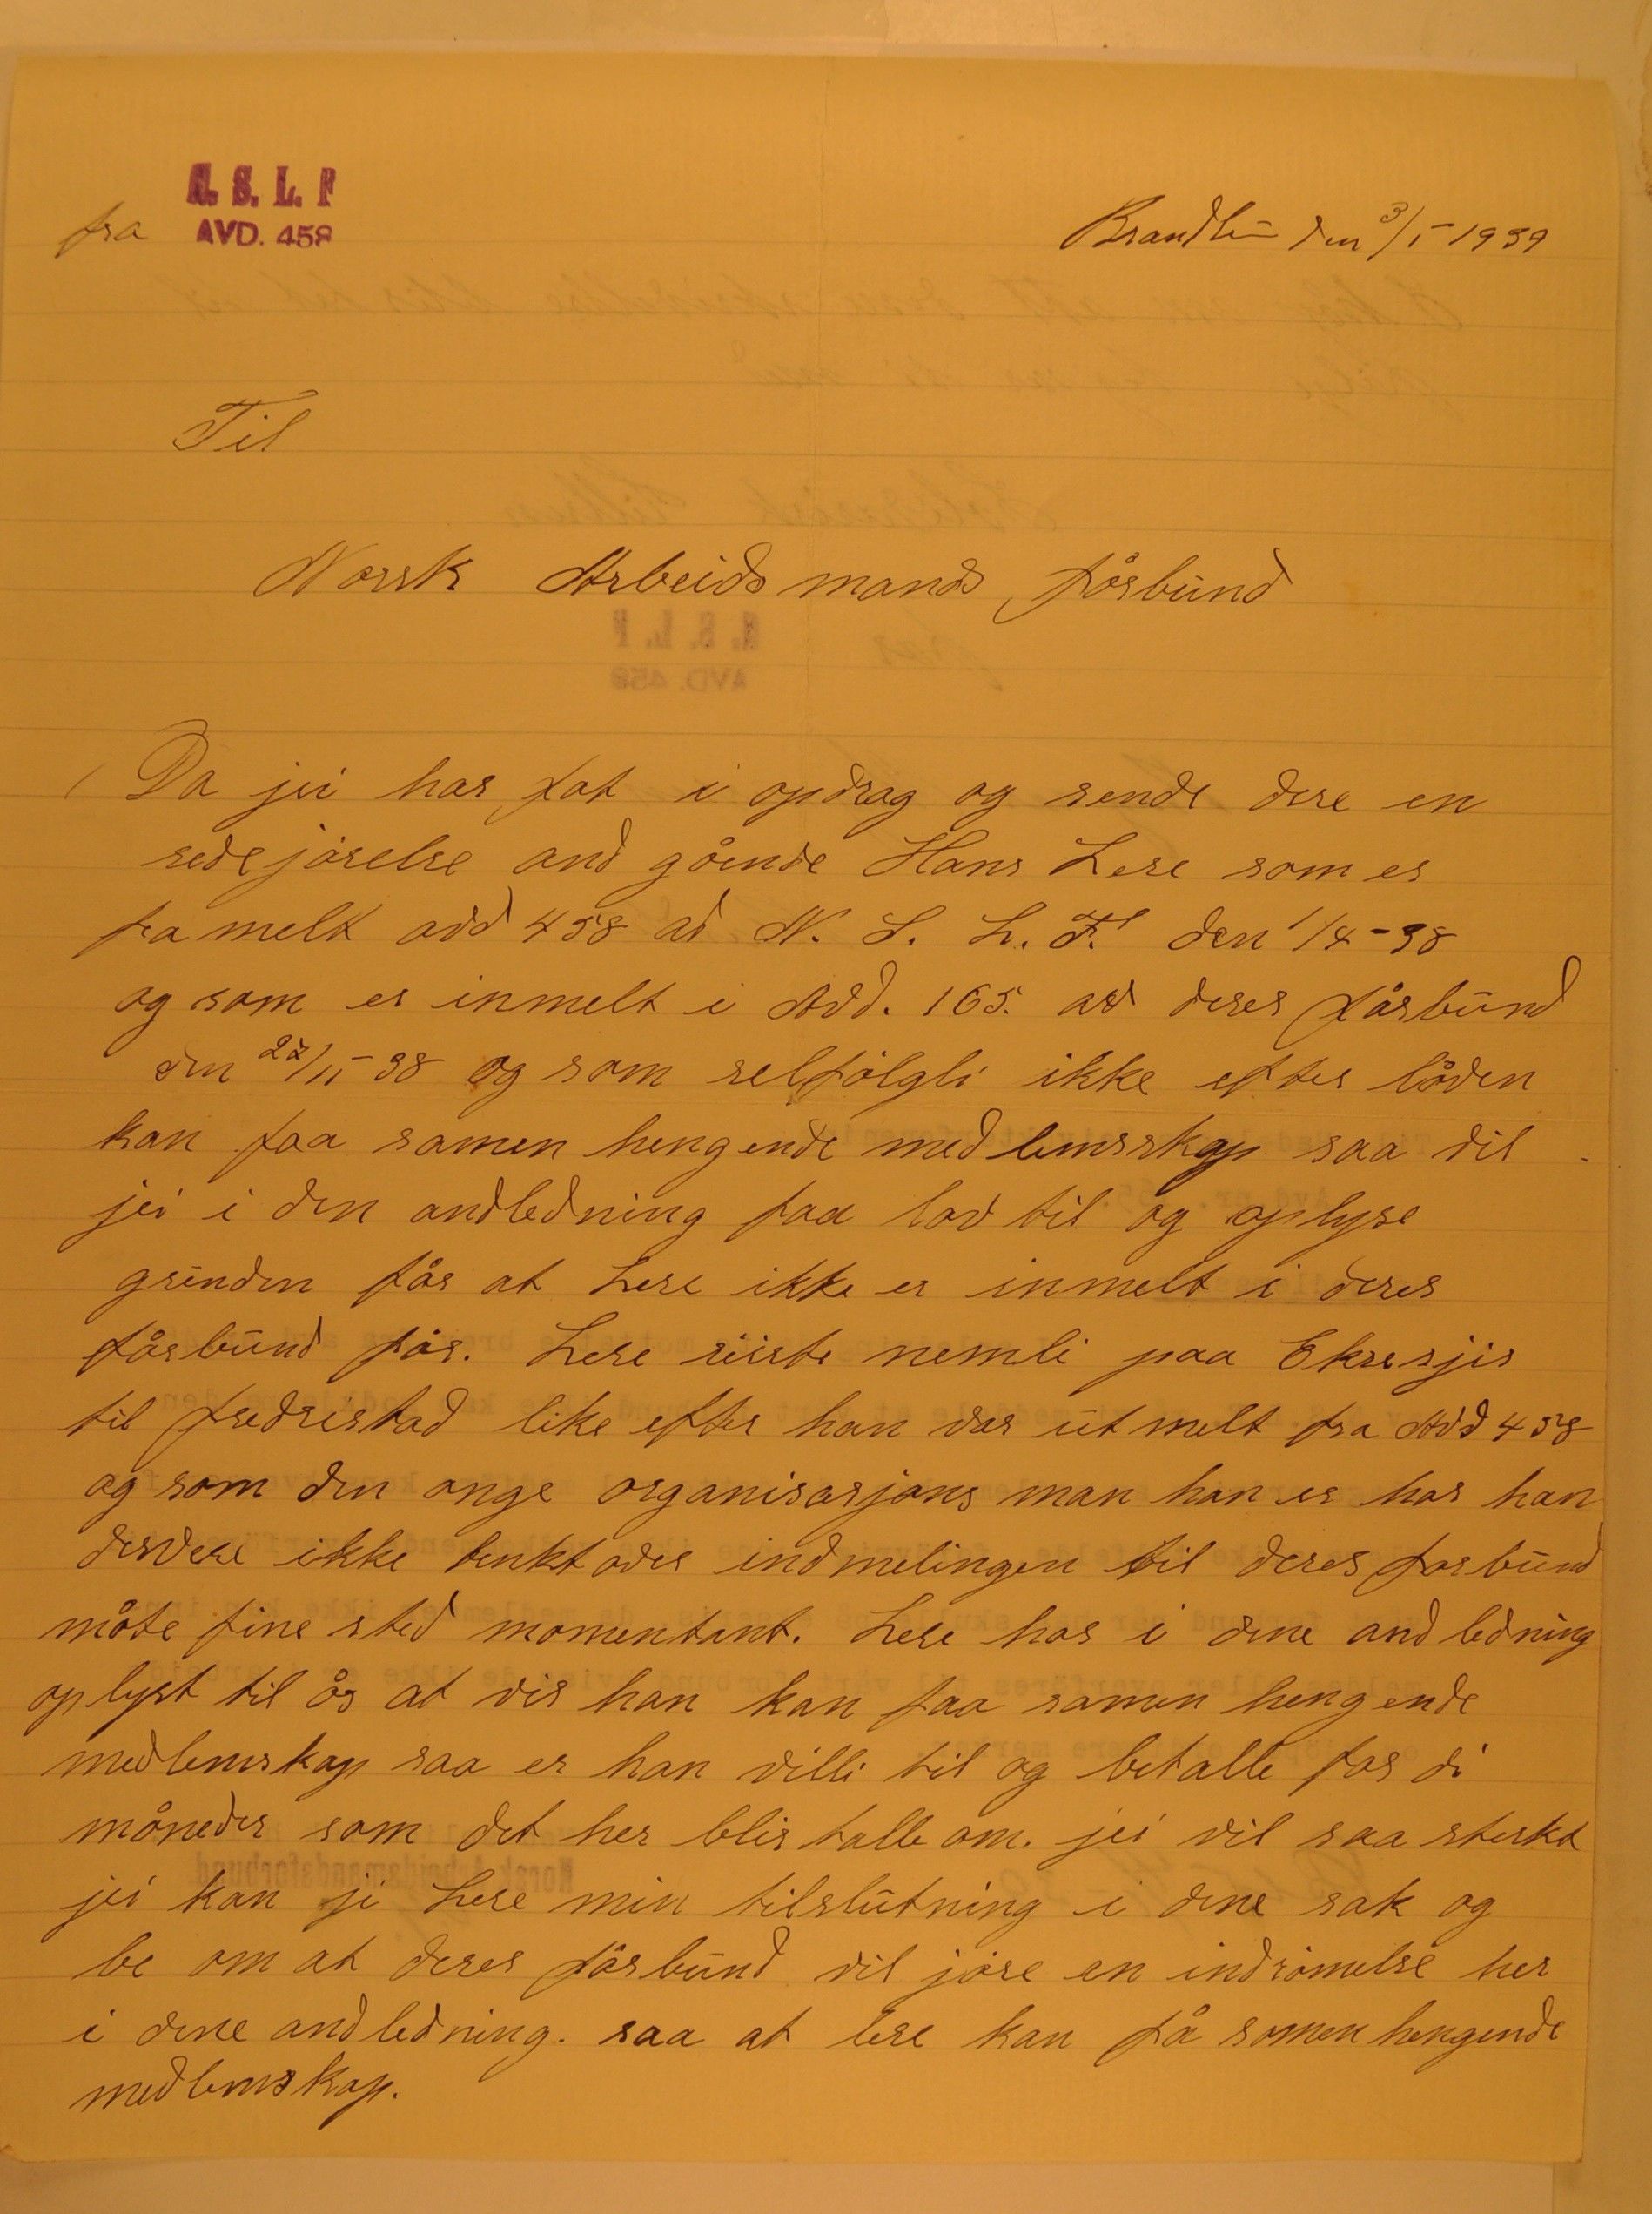 N. S. L. F
fra AVD. 458
den 3/1-1939
Til
Norsk Arbeids mands førbund
Da jei har fat i opdrag og sende dere en
redejørelse and gående Hans Lere som er
fra melt avd 458 av N. S. L. F. den 1/4-38
og som er inmelt i Avd. 165. av deres førbund
den 22/11-38 og som selfølgli ikke efter låven
kan faa samen hengende medlemsskap saa vil
jei i den andledning faa lov til og oplyse
grunden før at Lere ikke er inmelt i deres
førbund før. Lere reiste nemli paa Eksesjis
til fredristad like efter han var utmelt fra Avd 458
og som den onge organisasjons man han er har han
desvere ikke tenkt over indmelingen til deres forbund
måte fine sted momentant. Lere har i dene and ledning
oplyst til ås at vis han kan faa samen hengende
medlemskap saa er han villi til og betalle for di
måneder som det her blir talle om. jei vil saa sterkt
jei kan ji Lere min tilslutning i dene sak og
be om at deres førbund vil jøre en indrømelse her
i dene andledning. saa at lere kan få samen hengende
medlemskap.